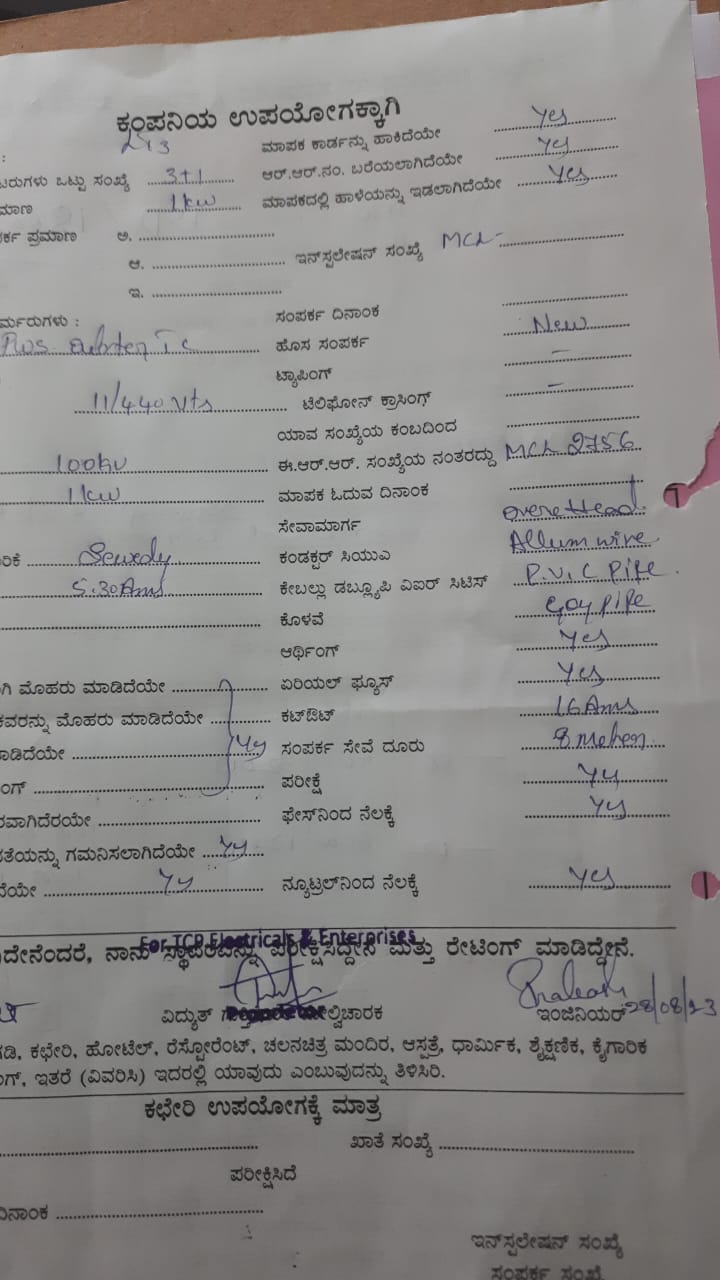 ಕಂಪನಿಯ ಉಪಯೋಗಕ್ಕಾಗಿ
ಮಾಪಕ ಕಾರ್ಡನ್ನು ಹಾಕಿದೆಯೇ Yes
ಟರುಗಳು ಒಟ್ಟು ಸಂಖ್ಯೆ 3+1 ಆರ್.ಆರ್.ನಂ. ಬರೆಯಲಾಗಿದೆಯೇ Yes
ಮಾಣ 1kw ಮಾಪಕದಲ್ಲಿ ಹಾಳೆಯನ್ನು ಇಡಲಾಗಿದೆಯೇ Yes
ರ್ಕ ಪ್ರಮಾಣ ಅ.
ಆ. ಇನ್‌ಸ್ಟಲೇಷನ್ ಸಂಖ್ಯೆ MCL-
ಇ.
ರ್ಮರುಗಳು : ಸಂಪರ್ಕ ದಿನಾಂಕ
TC ಹೊಸ ಸಂಪರ್ಕ New
ಟ್ಯಾಪಿಂಗ್ –
11/440 Vts ಟೆಲಿಫೋನ್ ಕ್ರಾಸಿಂಗ್ –
ಯಾವ ಸಂಖ್ಯೆಯ ಕಂಬದಿಂದ
100kv ಈ.ಆರ್.ಆರ್. ಸಂಖ್ಯೆಯ ನಂತರದ್ದು MCL 2756
1kw ಮಾಪಕ ಓದುವ ದಿನಾಂಕ
ಸೇವಾಮಾರ್ಗ overe Head
ರಿಕೆ Sewedy ಕಂಡಕ್ಟರ್ ಸಿಯುಎ Allum wire
5.30 Ams ಕೇಬಲ್ಲು ಡಬ್ಲ್ಯೂಪಿ ವಿಐರ್ ಸಿಟಿಸ್ P.V.C Pipe
ಕೊಳವೆ Goy pipe
ಆರ್ಥಿಂಗ್ Yes
ಗಿ ಮೊಹರು ಮಾಡಿದೆಯೇ ಏರಿಯಲ್ ಫ್ಯೂಸ್ Yes
ಕವರನ್ನು ಮೊಹರು ಮಾಡಿದೆಯೇ ಕಟ್‌ಔಟ್ 16 Ams
ಾಡಿದೆಯೇ Yy ಸಂಪರ್ಕ ಸೇವೆ ದೂರು 8
ಂಗ್ ಪರೀಕ್ಷೆ Yy
ರವಾಗಿದೆರಯೇ ಫೇಸ್‌ನಿಂದ ನೆಲಕ್ಕೆ Yy
ಪತೆಯನ್ನು ಗಮನಿಸಲಾಗಿದೆಯೇ Yy
ದೆಯೇ Yy ನ್ಯೂಟ್ರಲ್‌ನಿಂದ ನೆಲಕ್ಕೆ Yes
For TCP Electricals & Enterprises
ದೇನೆಂದರೆ, ನಾನು ಸ್ಥಾಪಕವನ್ನು ಪರೀಕ್ಷಿಸಿದ್ದೇನೆ ಮತ್ತು ರೇಟಿಂಗ್ ಮಾಡಿದ್ದೇನೆ.
ವಿದ್ಯುತ್ ಲ್ವಿಚಾರಕ ಇಂಜಿನಿಯರ್ 28/08/23
ಗಡಿ, ಕಛೇರಿ, ಹೋಟೆಲ್, ರೆಸ್ಟೋರೆಂಟ್, ಚಲನಚಿತ್ರ ಮಂದಿರ, ಆಸ್ಪತ್ರೆ, ಧಾರ್ಮಿಕ, ಶೈಕ್ಷಣಿಕ, ಕೈಗಾರಿಕ
ಂಗ್, ಇತರೆ (ವಿವರಿಸಿ) ಇದರಲ್ಲಿ ಯಾವುದು ಎಂಬುವುದನ್ನು ತಿಳಿಸಿರಿ.
ಕಛೇರಿ ಉಪಯೋಗಕ್ಕೆ ಮಾತ್ರ
ಖಾತೆ ಸಂಖ್ಯೆ
ಪರೀಕ್ಷಿಸಿದೆ
ದಿನಾಂಕ
ಇನ್‌ಸ್ಟಲೇಷನ್ ಸಂಖ್ಯೆ
ಸಂಪರ್ಕ ಸಂಖ್ಯೆ